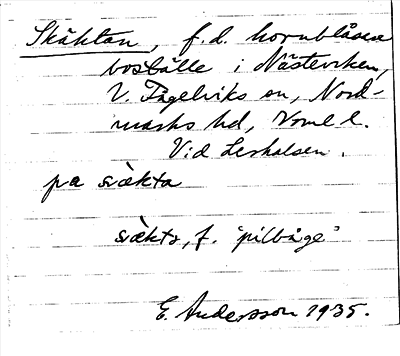 Skäktan, f.d. hornblåsare
boställe i Nästeviken,
V. Fågelviks sn, Nord-
marks hd, Vrml l.
Vid Lerhalsen.
på
f. "pilbåge"
E. Andersson 1935.